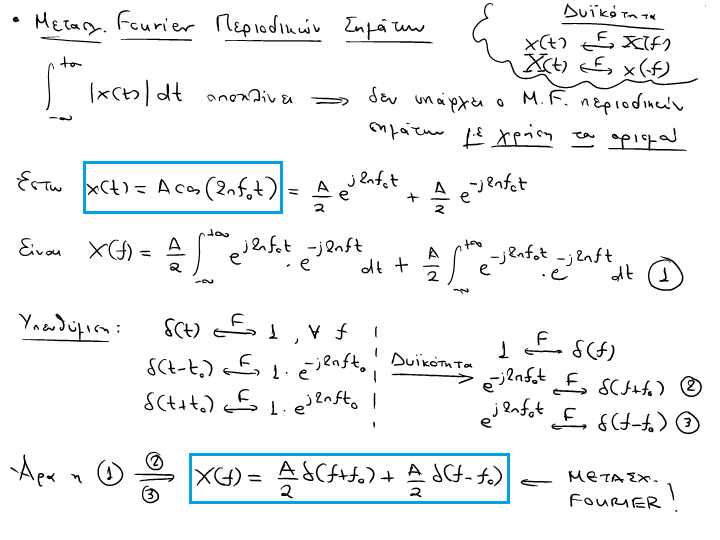 • Μετασχ. Fourier Περιοδικών Σημάτων
Δυϊκότητα
x(t) ⟷F X(f)
X(t) ⟷F x(-f)
∫_{-∞}^{+∞} |x(t)| dt αποκλίνει ⟹ δεν υπάρχει ο Μ.F. περιοδικών
σημάτων με χρήση του ορισμού
Έστω x(t) = A cos(2πf₀t) = A/2 e^{j2πf₀t} + A/2 e^{-j2πf₀t}
Είναι X(f) = A/2 ∫_{-∞}^{+∞} e^{j2πf₀t} · e^{-j2πft} dt + A/2 ∫_{-∞}^{+∞} e^{-j2πf₀t} · e^{-j2πft} dt ①
Υπενθύμιση: δ(t) ⟷F 1, ∀ f
δ(t-t₀) ⟷F 1 · e^{-j2πft₀}
δ(t+t₀) ⟷F 1 · e^{j2πft₀}
Δυϊκότητα
1 ⟷F δ(f)
e^{-j2πf₀t} ⟷F δ(f+f₀) ②
e^{j2πf₀t} ⟷F δ(f-f₀) ③
Άρα η ① ⟹ ② ③ X(f) = A/2 δ(f+f₀) + A/2 δ(f-f₀) ← ΜΕΤΑΣΧ.
FOURIER!